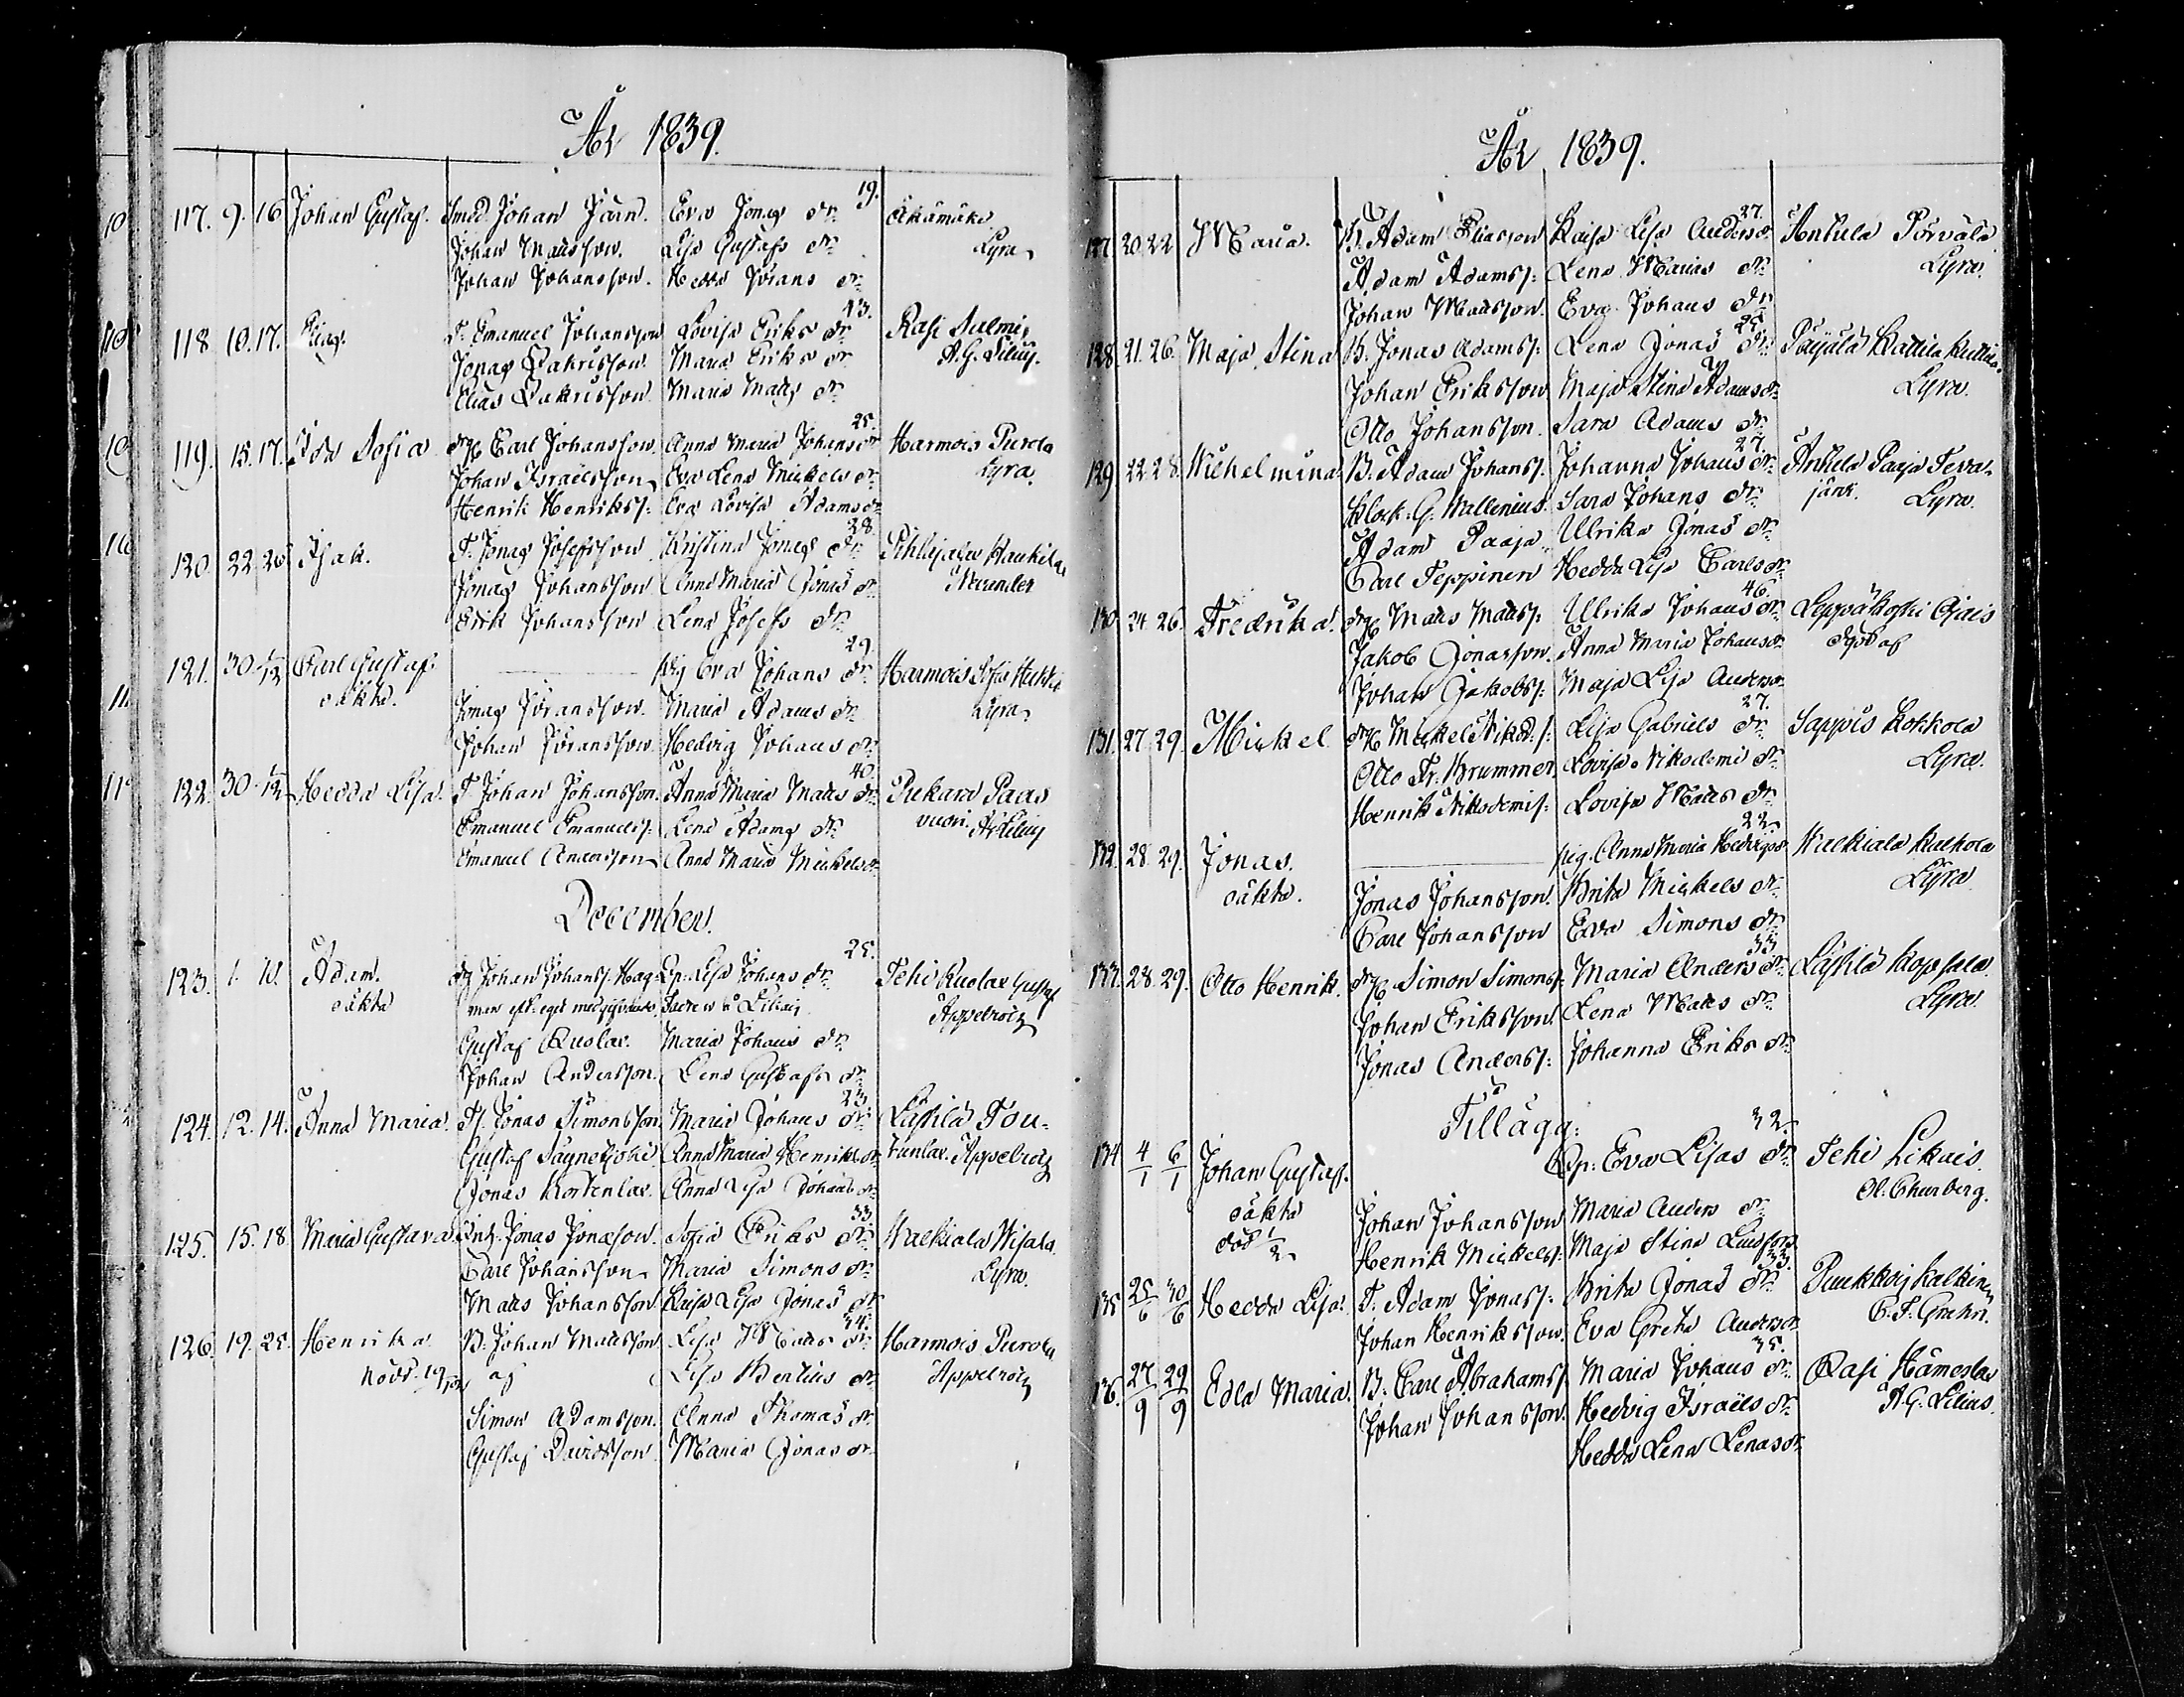 År 1839.
117. 9. 16 Johan Gustaf. Smed Johan Järn. Eva Jonas dr 19.
Johan Matsson. Lisa Gustafs dr Lyra
Johan Johansson. Hedda Jörans dr
118 10. 17. Elias. T. Emanuel Johansson Lovisa Eriks dr 43. Rasi Salmis
Jonas Sakrisson. Maria Eriks dr A. G. Lilius.
Elias Sakrisson Maria Matts dr
119. 15. 17. Ida Sofia drg Carl Johansson. Anna Maria Johans dr 25. Harmois Purola
Johan Israelsson Eva Lena Mickels dr Lyra.
Henrik Henrikss: Eva Lovisa Adams dr
120 22 26 Isak. T. Jonas Josefsson Kristina Jonas dr 28.
Jonas Johansson Anna Maria Jonas dr
Erik Johansson Lena Josefs dr
121. 30 1/12 Carl Gustaf: pig Eva Johans dr 29. Harmois
oäkta. Jonas Jöransson. Maria Adams dr Lyra
Johan Jöransson Hedvig Johans dr
122. 30 1/12 Hedda Lisa. T. Johan Johansson. Anna Maria Matts dr 40. Pukara Paas
Emanuel Emanuels: Lena Adams dr vuori.
Emanuel Andersson Anna Maria Mickels dr
December.
123. 1. 10. Adam. drg Johan Johanss. Hag- Qp. Lisa Johans dr 25. Tehi Ruolax Gustaf
oäkta man Appelroth
Gustaf Ruolax. Maria Johans dr
Johan Andersson. Lena Gustafs dr
124. 12. 14. Anna Maria. Jonas Simonsson Maria Johans dr 23. Läsilä Tou-
Gustaf Säynetjoki. Anna Maria Henriks dr tunlax. Appelroth
Jonas Kortenlax. Anna Lisa Johans dr
125. 15. 18 Maria Gustava Jonas Jonasson. Sofia Eriks dr 33. Walkiala Wisala
Carl Johansson Maria Simons dr Lyra.
Matts Johansson. Kaisa Lisa Jonas dr
126. 19. 25. Henrika B. Johan Mattsson Lisa Matts dr 34. Harmois Purola
nöddt. 19 af Lisa Bertils dr Appelroth
Simon Adamsson. Anna Thomas dr
Gustaf Davidsson. Maria Jonas dr
År 1839.
127. 20. 22 Maria. B. Adam Eliasson Kaisa Lisa Anders dr 27. Anttila Pörvälä
Adam Adamss: Lena Marias dr Lyra.
Johan Mattsson. Eva Johans dr
128. 21. 26. Maja Stina B. Jonas Adamss: Lena Jonas dr 25. Päijälä Kattila
Johan Eriksson Maja Stina Adams dr Lyra.
Otto Johansson. Sara Adams dr
129 22. 28. Wilhelmina B. Adam Johanss. Johanna Johans dr 27. Anttila Paaja Teva-
Klock. G. Wallenius. Sara Johans dr järvi. Lyra.
Adam Paaja. Ulrika Jonas dr
Carl Teppinen Hedda Lisa Carls dr
130 24. 26. Fredrika. drg Matts Matts: Ulrika Johans dr 46. Leppäkoski
Jakob Jonasson. Anna Maria Johans dr
Johan Jakobs: Maja Lisa Anders dr
131. 27. 29. Mickel drg Mickel Nikod. s: Lisa Gabriels dr 27. Sappis Kokkola
Otto Fr. Brummer Lovisa Nikodemi dr Lyra.
Henrik Nikodemis: Lovisa Matts dr
132. 28. 29. Jonas. pig. Anna Maria Hedvigs dr 22. Walkiala
oäkta. Jonas Johansson. Brita Mickels dr Lyra
Carl Johansson Eva Simons dr
133. 28. 29. Otto Henrik. drg Simon Simons: Maria Anders dr 33. Läsilä Kopsala
Johan Eriksson. Lena Matts dr Lyra.
Jonas Anderss: Johanna Eriks dr
Tillägg:
134 4/1 6/1 Johan Gustaf. Qp: Eva Lisas dr 32. Tehi
oäkta Johan Johansson Maria Anders dr Ol. Churberg.
död 1/2 Henrik Mickels: Maja Stina
135 25/6 30/6 Hedda Lisa. T. Adam Jonass: Brita Jonas dr 33. Puukkois
Johan Henriksson. Eva Greta Anders dr
136. 27/9 29/9 Edla Maria. B. Carl Abrahamss Maria Johans dr 35. Rasi Hämeslax
Johan Johansson. Hedvig Israels dr A. G. Lilius.
Hedda Lena Lenas dr